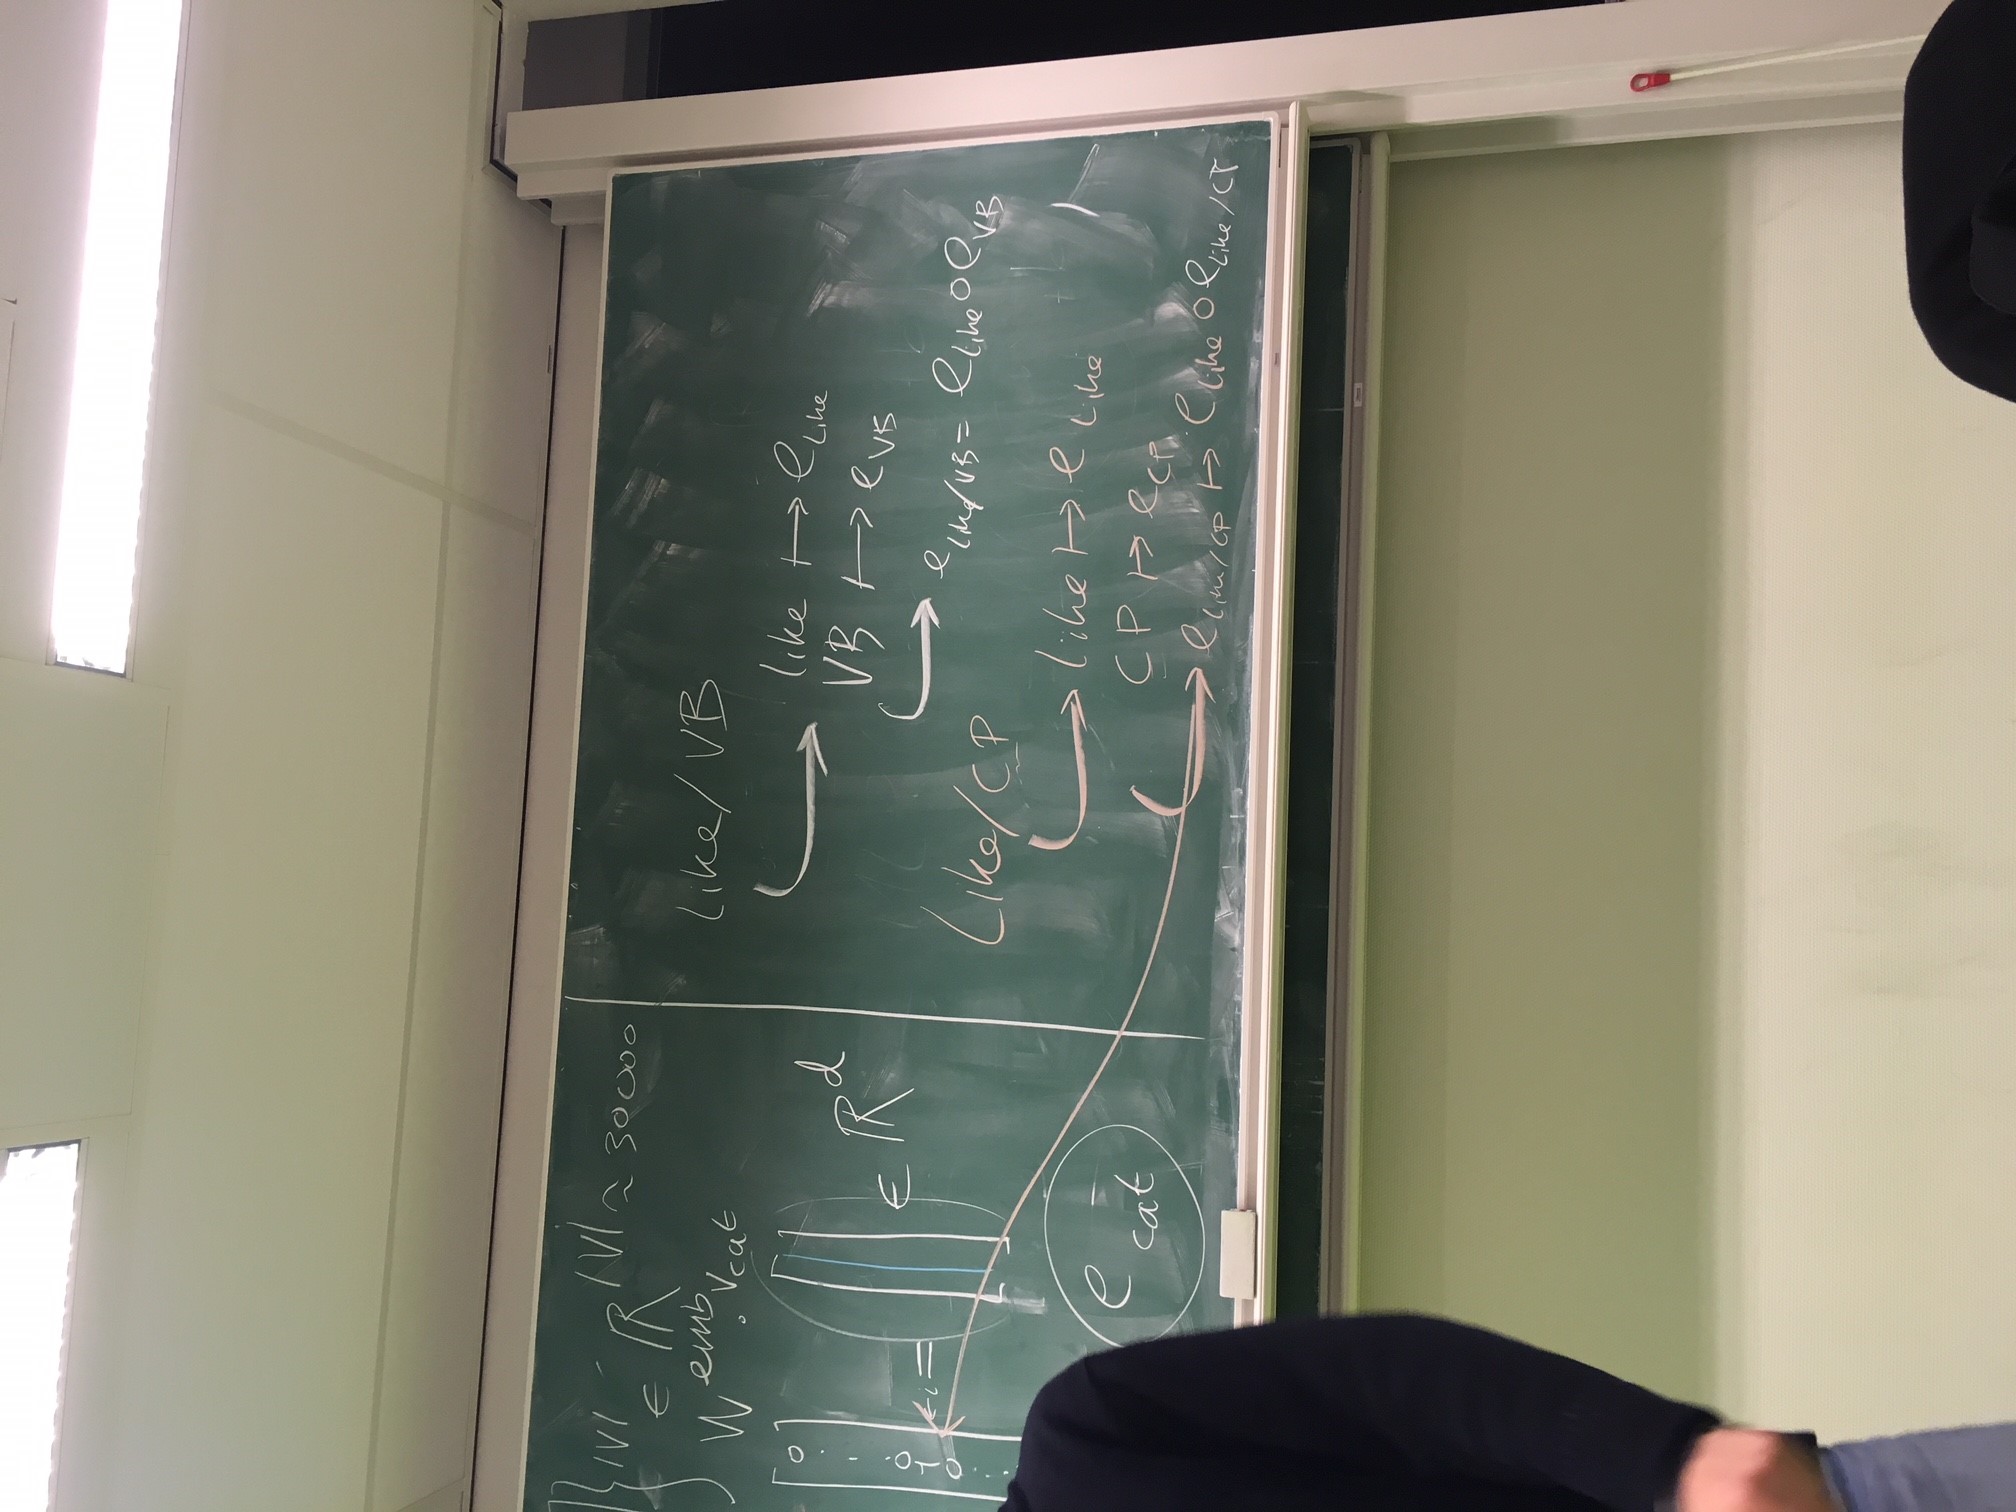 } |V|
∈ ℝ |V| ~ 30000
W emb · v cat
[ 0 . . 0 1 0 . . ] ← i = [ ] ∈ ℝ^d
e cat
Like/VB
like ↦ e_like
VB ↦ e_VB
e_like/VB = e_like ∘ e_VB
Like/CP
like ↦ e_like
CP ↦ e_CP
e_like/CP ↦ e_like ∘ e_like/CP